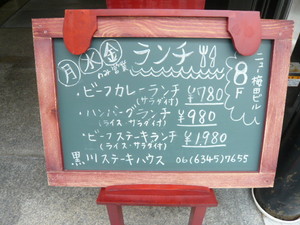 月 水 金 のみ営業
ランチ
ニュー梅田ビル
8F
・ビーフカレーランチ ¥780
(サラダ付)
・ハンバーグランチ ¥980
(ライス・サラダ付)
・ビーフステーキランチ ¥1,980
(ライス・サラダ付)
黒川ステーキハウス 06(6345)7655